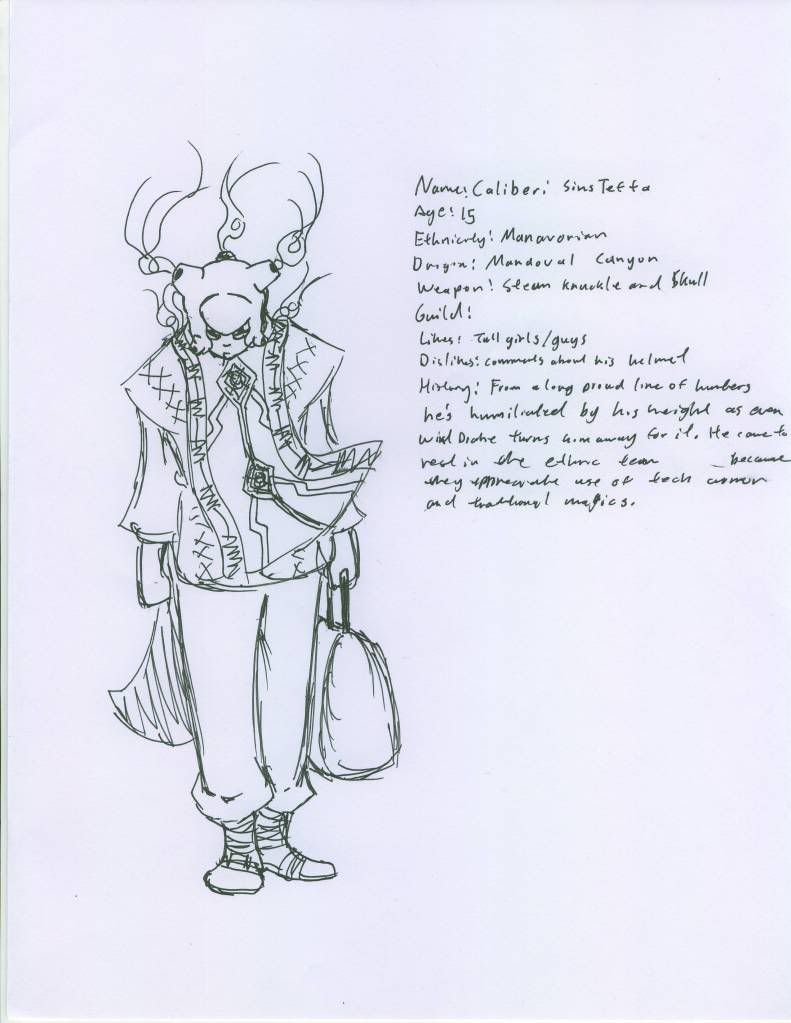 Name: Caliberi Sins Teffa
Age: 15
Ethnicity: Manavorian
Origin: Mandoval Canyon
Weapon: Steam knuckle and Skull
Guild:
Likes: Tall girls/guys
Dislikes: comments about his helmet
History: From a long proud line of hunters
he's humiliated by his height as even
turns him away for it. He came to
rest in the ethnic team because
they appreciate use of tech armor
and traditional magics.